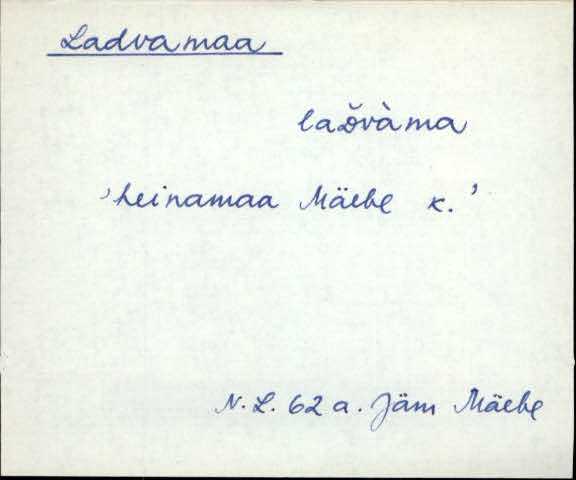 Ladvamaa
laδ̆vàma
'heinamaa Mäebe k.'
N. L. 62 a. Jäm Mäebe